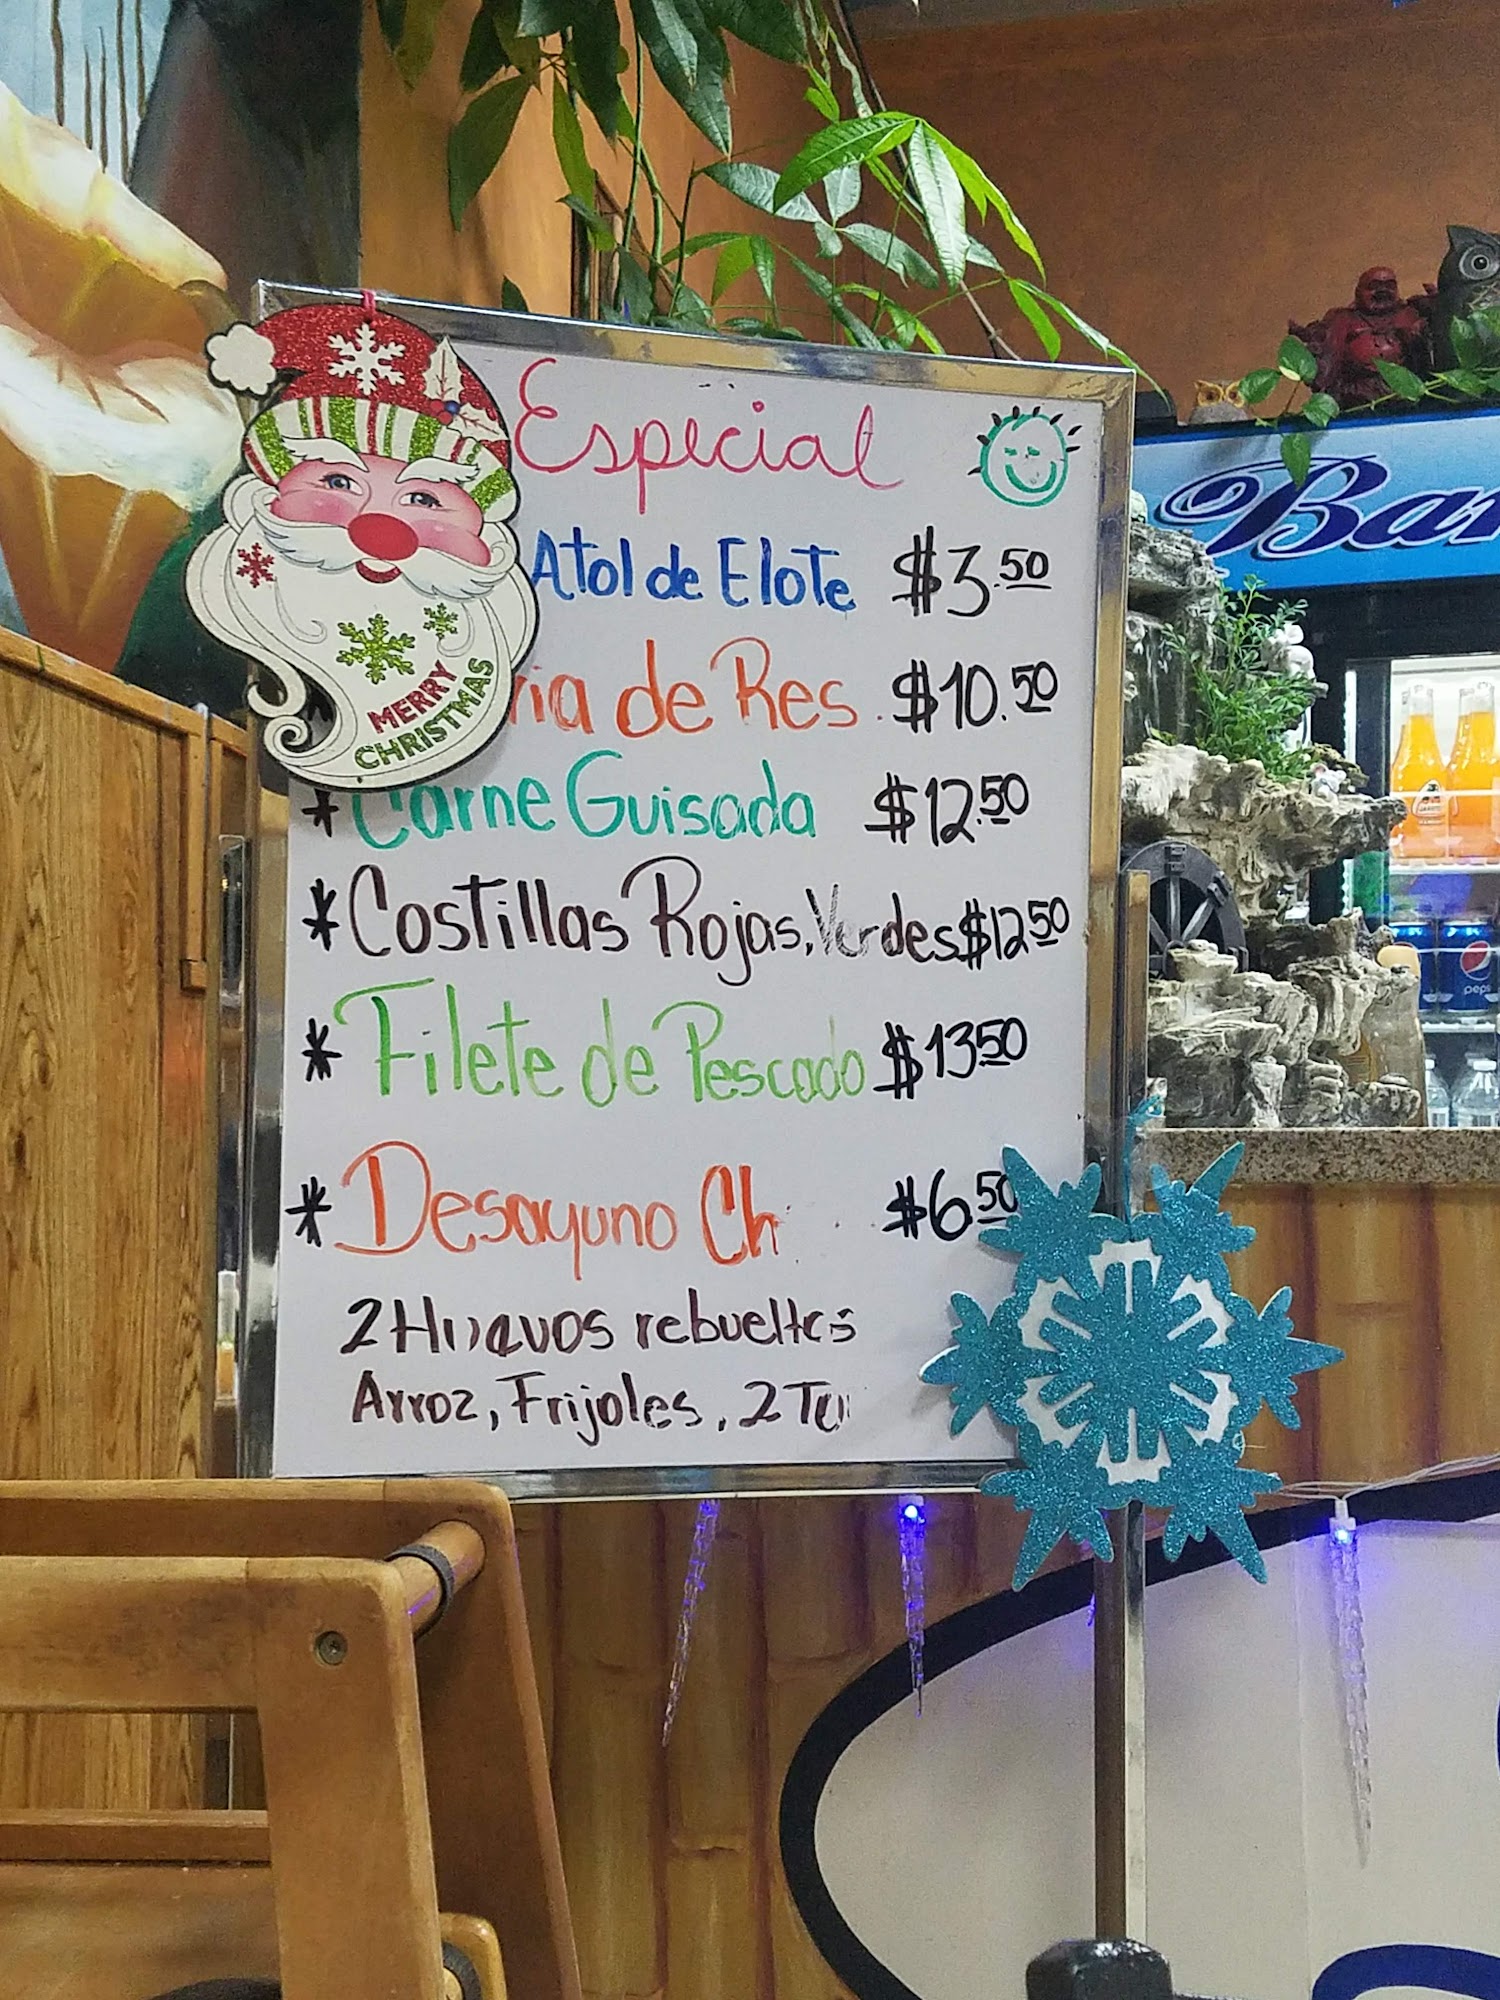 Especial
Atol de Elote $3.50
de Res $10.50
* Carne Guisada $12.50
* Costillas Rojas, Verdes $12.50
* Filete de Pescado $13.50
* Desayuno Ch $6.50
2 Huevos rebueltos
Arroz, Frijoles, 2
MERRY
CHRISTMAS
pepsi